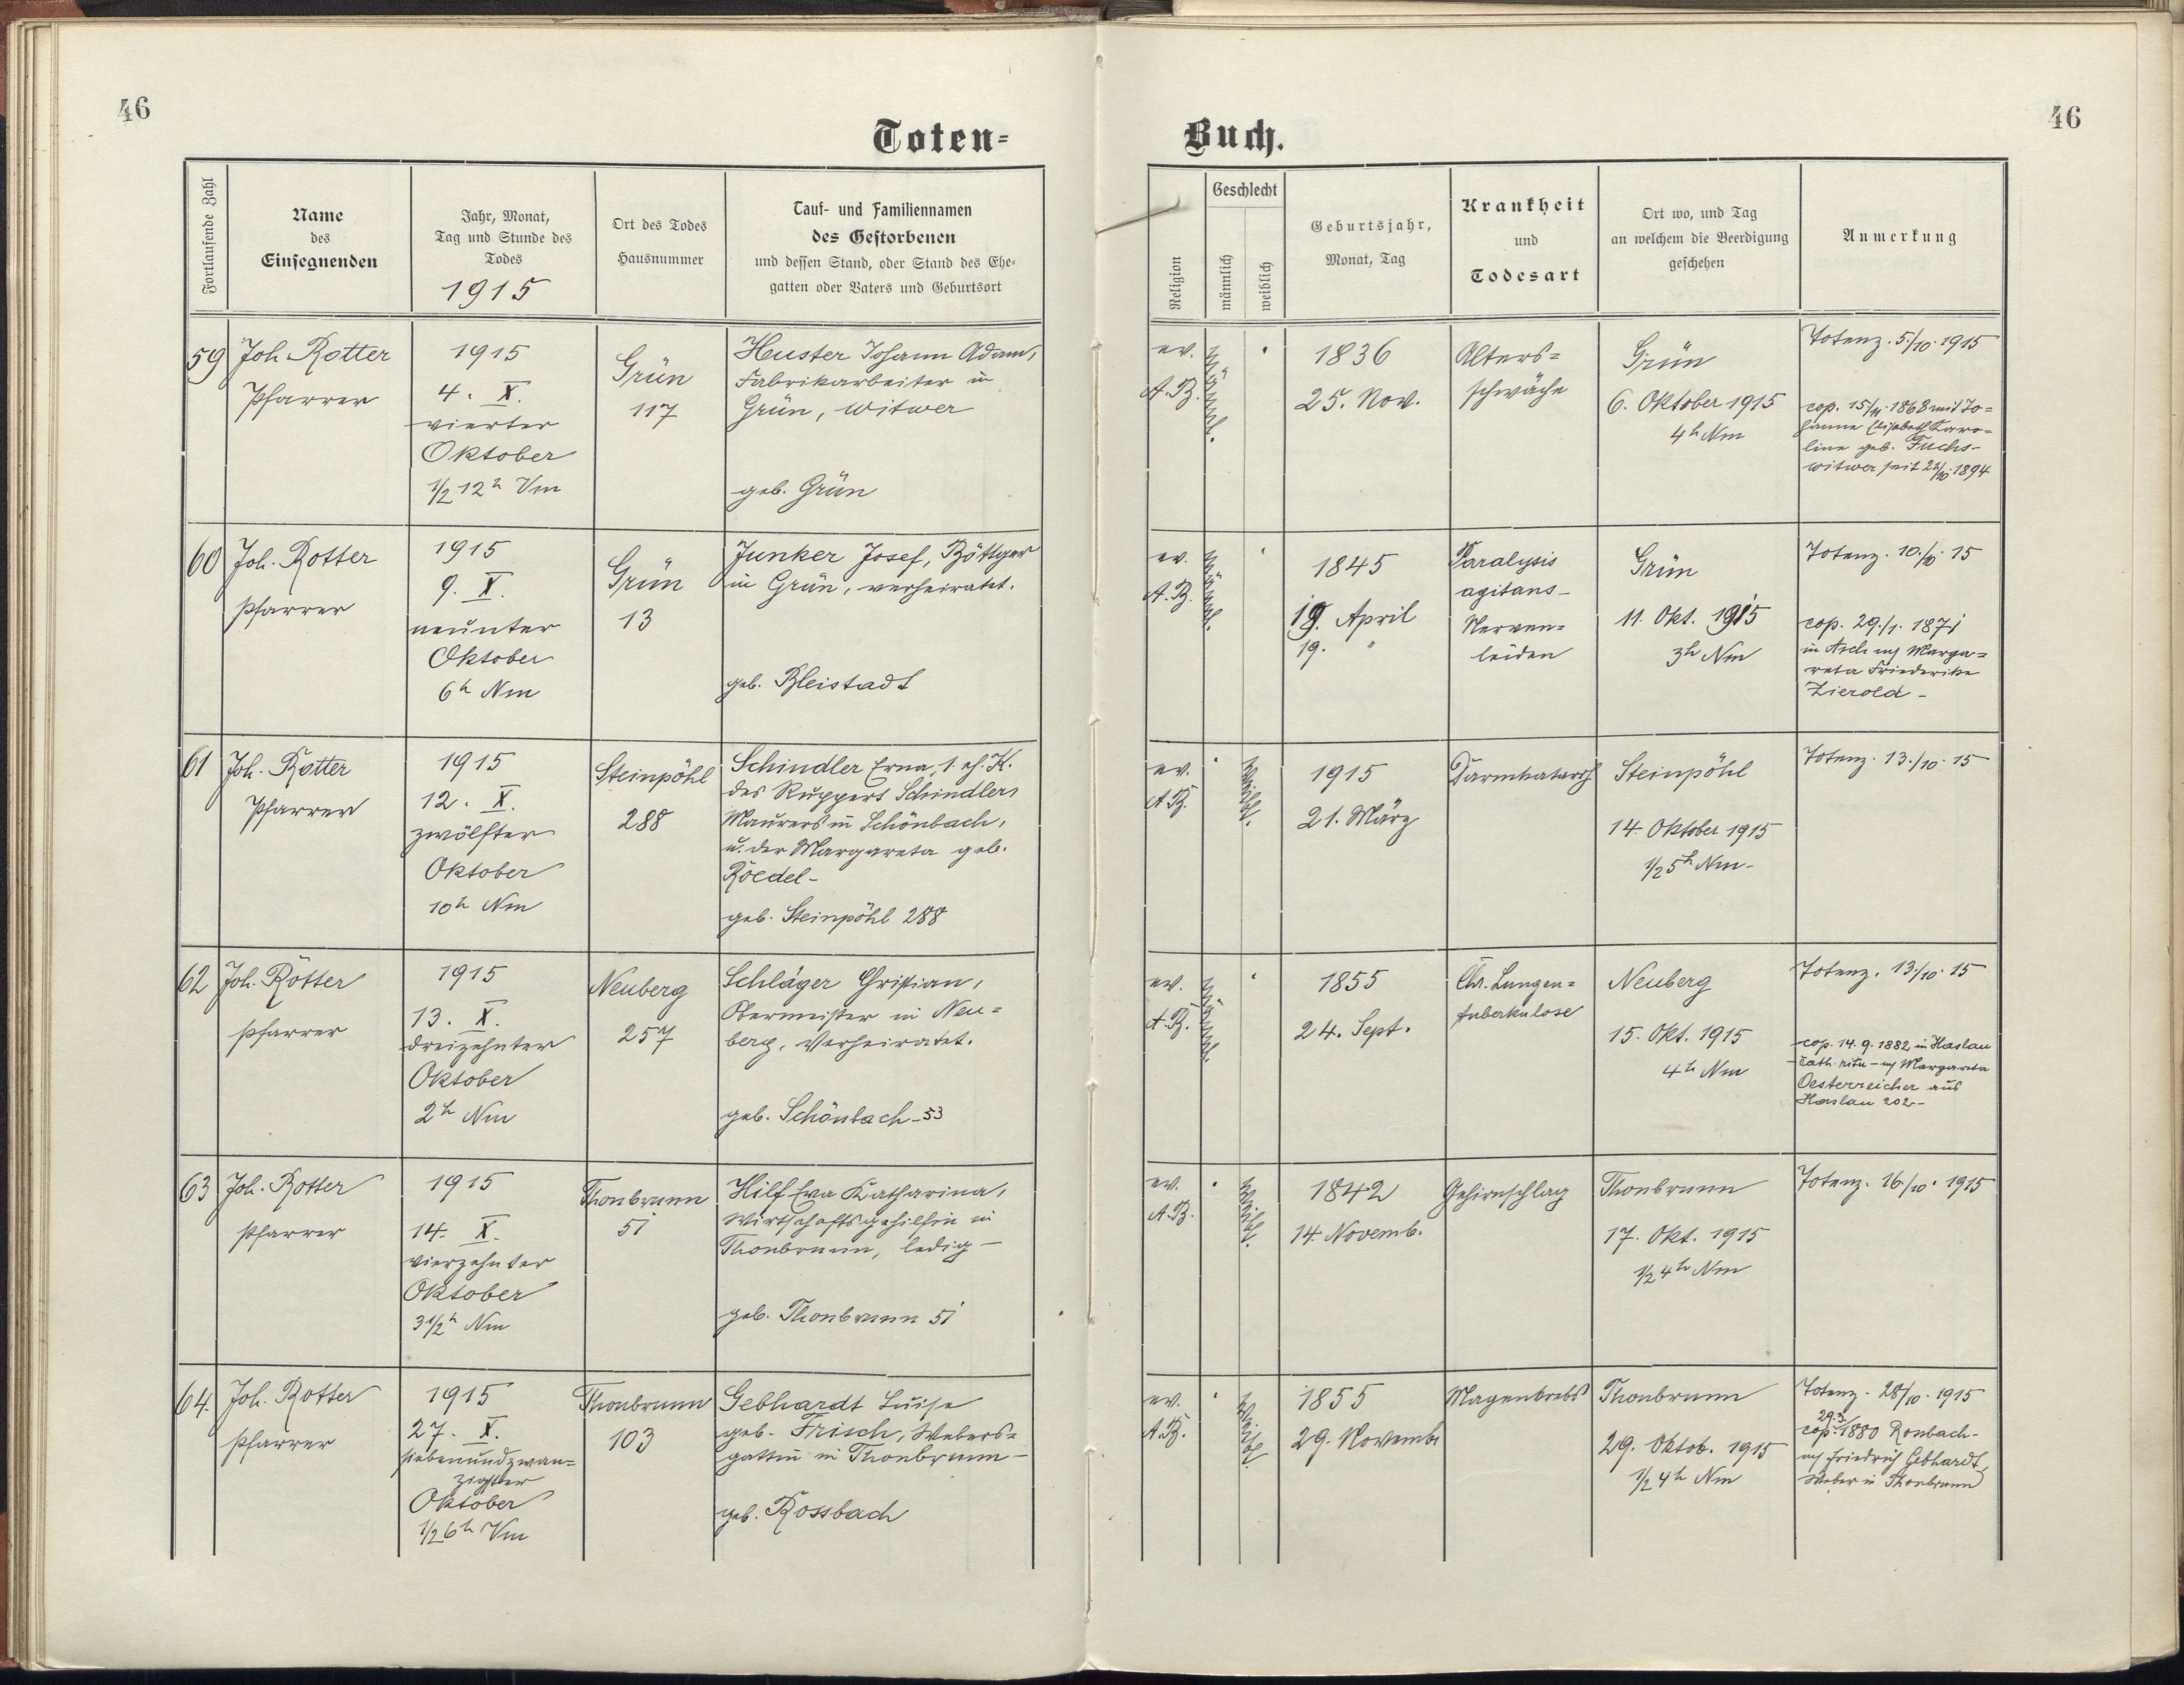 46
46
Toten-
Buch.
Fortlaufende Zahl
Name
des
Einsegnenden
Jahr, Monat,
Tag und Stunde des
Todes
1915
Ort des Todes
Hausnummer
Tauf- und Familiennamen
des Gestorbenen
und dessen Stand, oder Stand des Ehe-
gatten oder Vaters und Geburtsort
Religion
Geschlecht
männlich
weiblich
Geburtsjahr,
Monat, Tag
Krankheit
und
Todesart
Ort wo, und Tag
an welchem die Beerdigung
geschehen
Anmerkung
59
Joh. Rotter
Pfarrer
1915
4. X.
vierter
Oktober
1/2 12h Vm
Grün
117
Huster Johann Adam,
Fabrikarbeiter in
Grün, Witwer
geb. Grün
ev.
A.B.
männl.
1836
25. Nov.
Alters-
schwäche
Grün
6. Oktober 1915
4h Nm
Totenz. 5/10. 1915
cop. 15/11. 1868 mit Jo-
hanne Elisabeth Karo-
line geb. Fuchs-
witwer seit /10. 1894
60
Joh. Rotter
Pfarrer
1915
9. X.
neunter
Oktober
6h Nm
Grün
13
Junker Josef, Böttger
in Grün, verheiratet.
geb. Bleistadt
ev.
A.B.
männl.
1845
19. April
19. "
Paralysis
agitans-
Nerven-
leiden
Grün
11. Okt. 1915
3h Nm
Totenz. 10./10. 15
cop. 29./1. 1871
in Asch m/ Marga-
reta Friederike
Zierold-
61
Joh. Rotter
Pfarrer
1915
12. X.
zwölfter
Oktober
10h Nm
Steinpöhl
288
Schindler Erna, 1. eh. K.
des Ruppert Schindler,
Maurers in Schönbach,
u. der Margareta geb.
Roedel-
geb. Steinpöhl 288
ev.
A.B.
weibl.
1915
21. März
Darmkatarrh
Steinpöhl
14. Oktober 1915
1/2 5h Nm-
Totenz. 13./10. 15
62
Joh. Rotter
Pfarrer
1915
13. X.
dreizehnter
Oktober
2h Nm
Neuberg
257
Schläger Christian,
Obermeister in Neu-
berg, verheiratet.
geb. Schönbach-53
ev.
A.B.
männl.
1855
24. Sept.
Chr. Lungen-
tuberkulose
Neuberg
15. Okt. 1915
4h Nm
Totenz. 13/10. 15
cop. 14. 9. 1882 in Haslau
-cath. ritu- m/ Margareta
Oesterreicher aus
Haslau 202-
63
Joh. Rotter
Pfarrer
1915
14. X.
vierzehnter
Oktober
3 1/2h Nm
Thonbrunn
51
Hilf Eva Katharina,
Wirtschaftsgehilfin in
Thonbrunn, ledig-
geb. Thonbrunn 51
ev.
A.B.
weibl.
1842
14. Novemb.
Gehirnschlag
Thonbrunn
17. Okt. 1915
1/2 4h Nm
Totenz. 16./10. 1915
64.
Joh. Rotter
Pfarrer
1915
27. X.
siebenundzwan-
zigster
Oktober
1/2 6h Vm
Thonbrunn
103
Gebhardt Luise
geb. Frisch, Webers-
gattin in Thonbrunn-
geb. Rossbach
ev.
A.B.
weibl.
1855
29. Novemb.
Magenkrebs
Thonbrunn
29. Oktob. 1915
1/2 4h Nm
Totenz. 28/10. 1915
29.3.
cop. 1880 Rossbach-
m/ Friedrich Gebhardt,
Weber in Thonbrunn